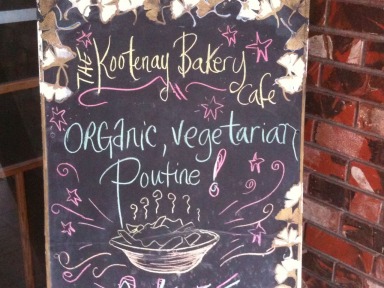 THE Kootenay Bakery
Cafe
ORGANIC, Vegetarian
Poutine!